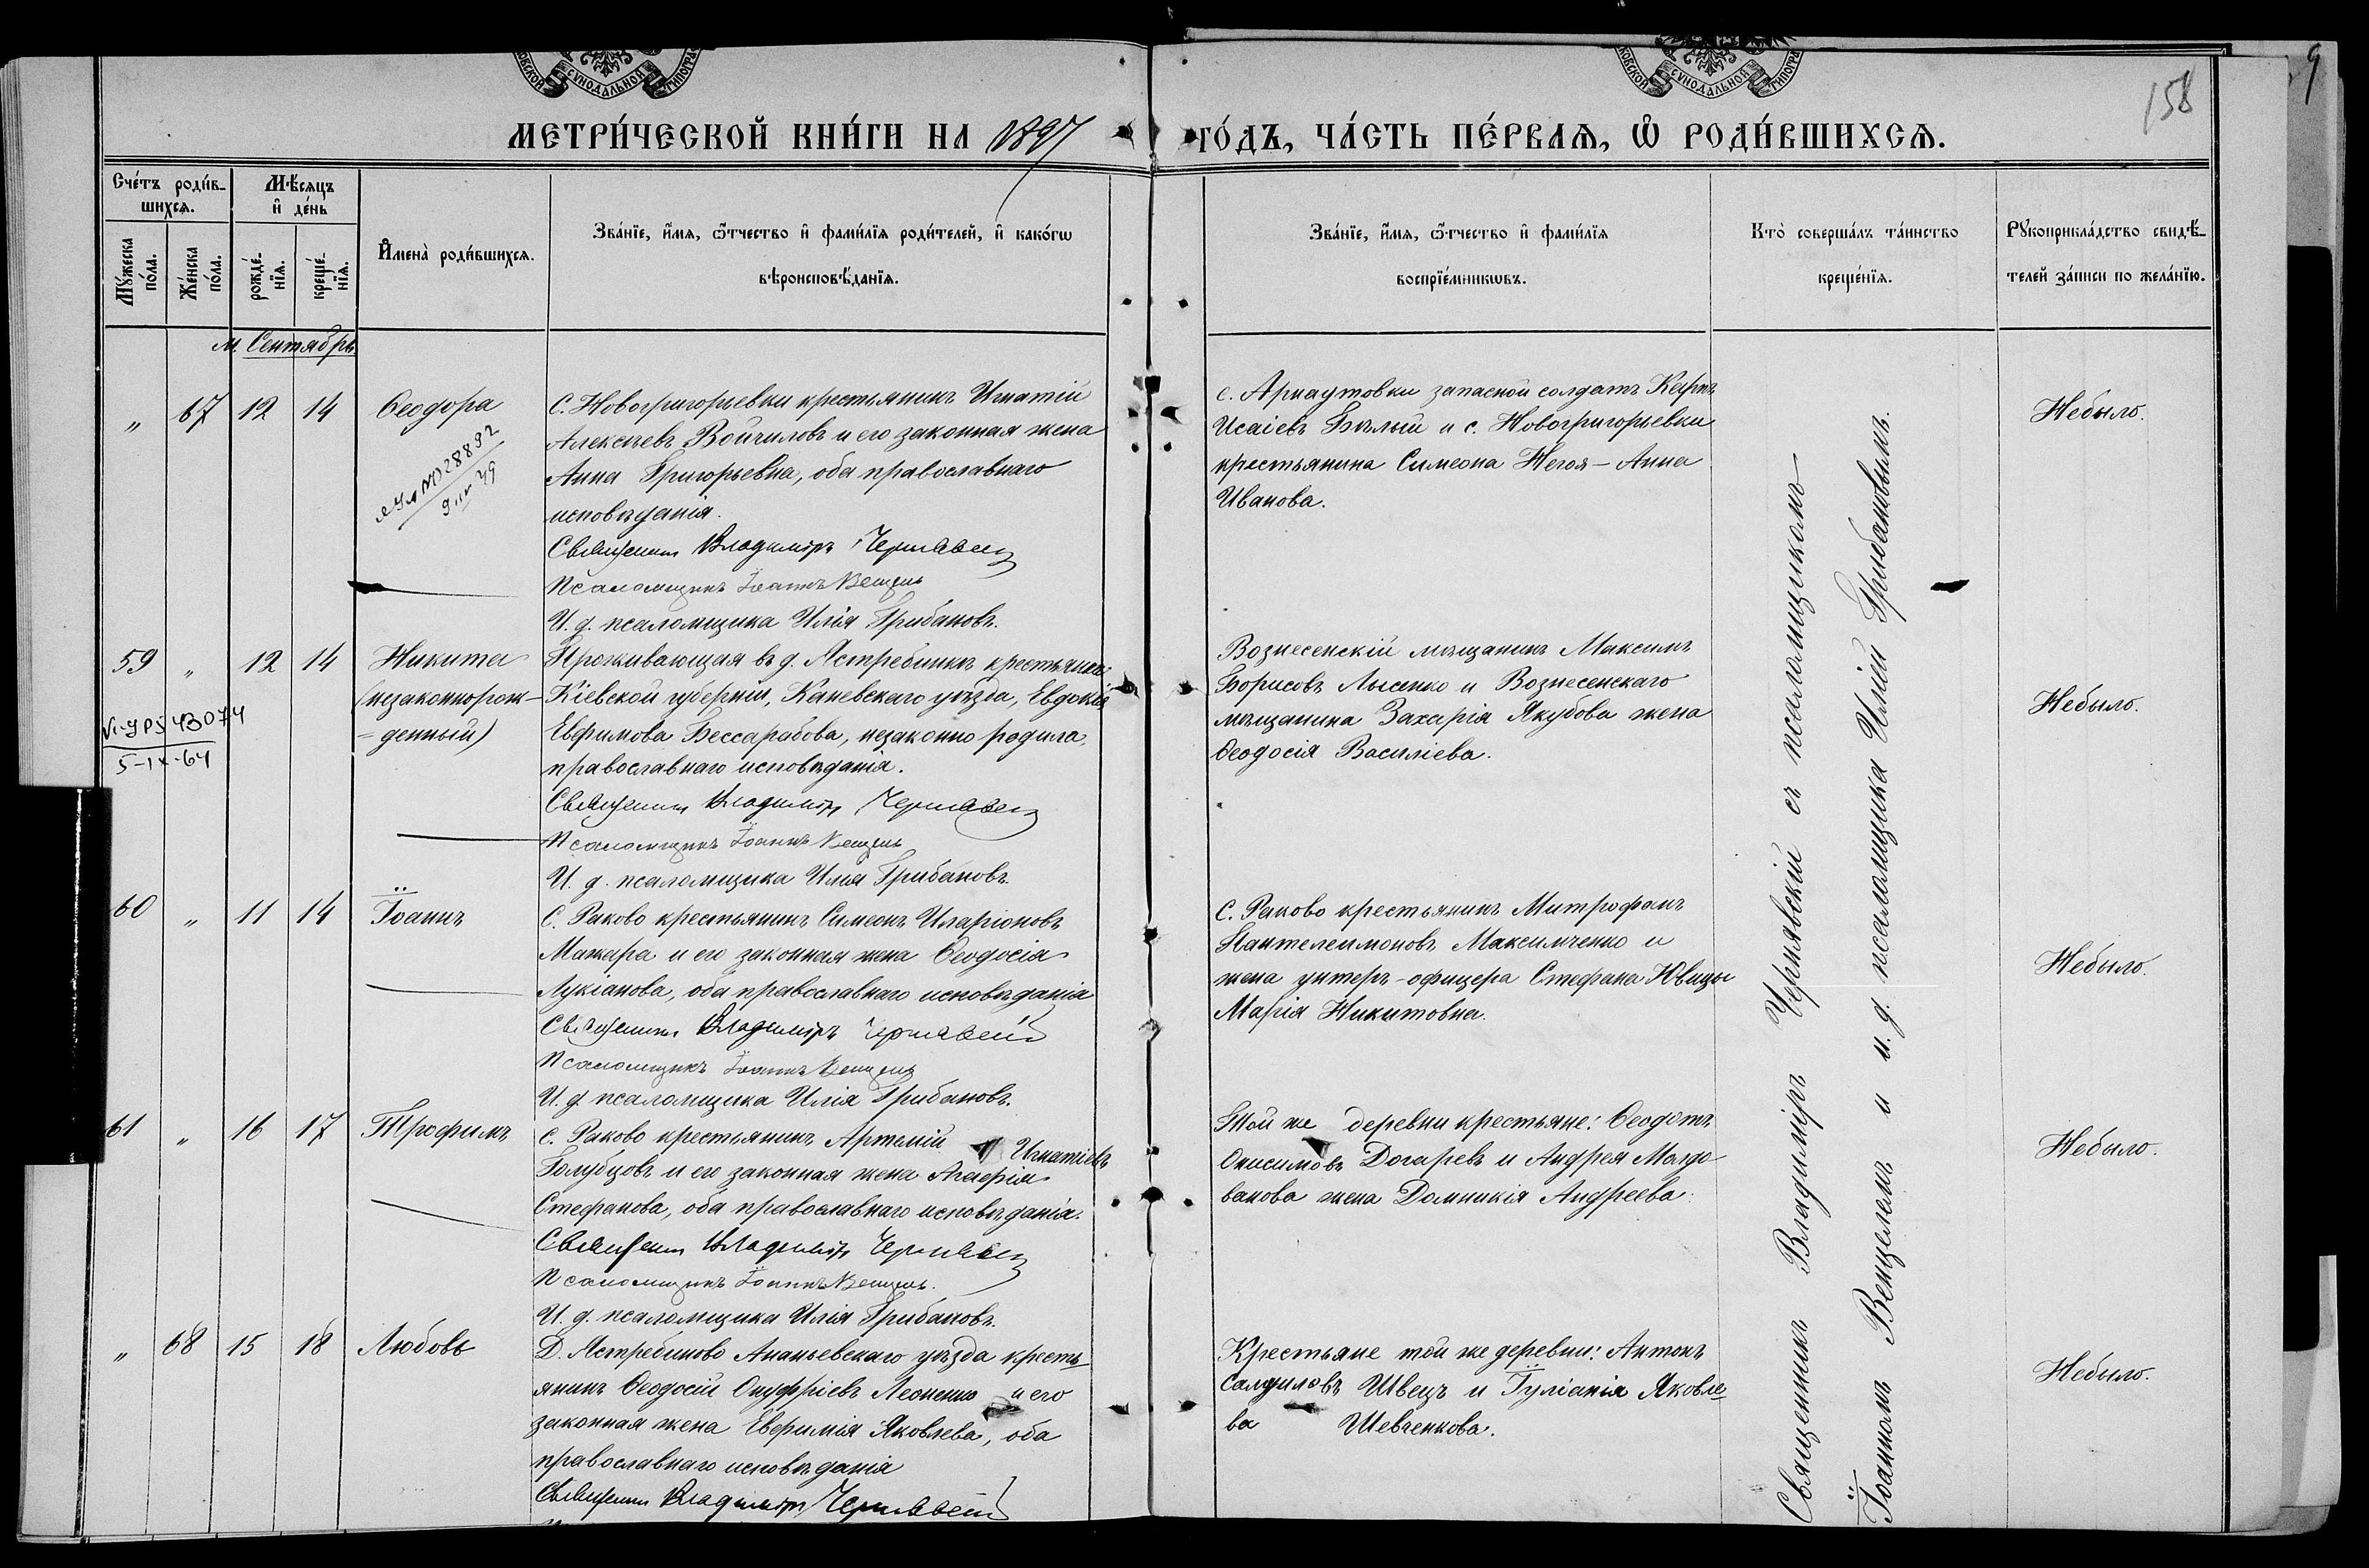 158
9
МЕТРИ́ЧЕСКОЙ КНИ́ГИ НА 1897 ГО́ДЪ, ЧА́СТЬ ПЕ́РВАѦ, Ѡ҆ РОДИ́ВШИХСѦ.
Сче́тъ роди́в-
шихсѧ.
Мѣ́сѧцъ
и҆ де́нь
Мꙋ́жеска
по́ла.
Же́нска
по́ла.
рожде́-
нїѧ.
креще́-
нїѧ.
И҆мена̀ роди́вшихсѧ.
Зва́нїе, и҆́мѧ, ѻ҆́тчество и҆ фами́лїѧ роди́телей, и҆ како́гѡ
вѣроисповѣ́данїѧ.
Зва́нїе, и҆́мѧ, ѻ҆́тчество и҆ фами́лїѧ
воспрїе́мникѡвъ.
Кто̀ соверша́лъ та́инство
креще́нїѧ.
Рꙋкоприкла́дство свидѣ́-
телей за́писи по жела́нїю.
м. Сентябрь
„ 67 12 14 Ѳеодора
С. Новогригорьевки крестьянинъ Игнатій
Алексѣевъ Войчиловъ и его законная жена
Анна Григорьевна, оба православнаго
исповѣданія.
Священникъ Владиміръ Чернявскій
Псаломщикъ Іоаннъ Венцель
И. д. псаломщика Илія Грибановъ.
с. Арнаутовки запасной солдатъ
Исаіевъ Бѣлый и с. Новогригорьевки
крестьянина Симеона Негоя – Анна
Иванова.
Небыло.
59 „ 12 14 Никита
(незаконнорож-
-денный)
43074
5-IX-64
Проживающая въ д. Ястребинки крестьянка
Кіевской губерніи, Каневскаго уѣзда, Евдокія
Евфимова Бессарабова, незаконно родила,
православнаго исповѣданія.
Священникъ Владиміръ Чернявскій
Псаломщикъ Іоаннъ Венцель
И. д. псаломщика Илія Грибановъ.
Вознесенскій мѣщанинъ Максимъ
Борисовъ Лысенко и Вознесенскаго
мѣщанина Захарія Якубова жена
Ѳеодосія Василіева.
Небыло.
60 „ 11 14 Іоаннъ
С. Раково крестьянинъ Симеонъ Иларіоновъ
Мажара и его законная жена Ѳеодосія
Лукіанова, оба православнаго исповѣданія
Священникъ Владиміръ Чернявскій
Псаломщикъ Іоаннъ Венцель
И. д. псаломщика Илія Грибановъ.
С. Раково крестьянинъ Митрофанъ
Пантелеимоновъ Максимченко и
жена унтеръ-офицера Стефана
Марія Никитовна.
Небыло.
61 „ 16 17 Трофимъ
С. Раково крестьянинъ Артемій Игнатіевъ
Голубцовъ и его законная жена Агафія
Стефанова, оба православнаго исповѣданія.
Священникъ Владиміръ Чернявскій
Псаломщикъ Іоаннъ Венцель.
И. д. псаломщика Илія Грибановъ.
Той же деревни крестьяне: Ѳеодотъ
Онисимовъ Догаревъ и Андрея Молдо-
ванова жена Домникія Андреева.
Небыло.
„ 68 15 18 Любовь
Д. Ястребиново Ананьевскаго уѣзда кресть-
янинъ Ѳеодосій Онуфріевъ Леоненко и его
законная жена Евфимія Яковлева, оба
православнаго исповѣданія
Священникъ Владиміръ Чернявскій
Крестьяне той же деревни: Антонъ
Швецъ и Іуліанія Яковле-
ва Шевченкова.
Небыло.
Священникъ Владиміръ Чернявскій съ псаломщикомъ
Іоанномъ Венцелемъ и и. д. псаломщика Иліей Грибановымъ.